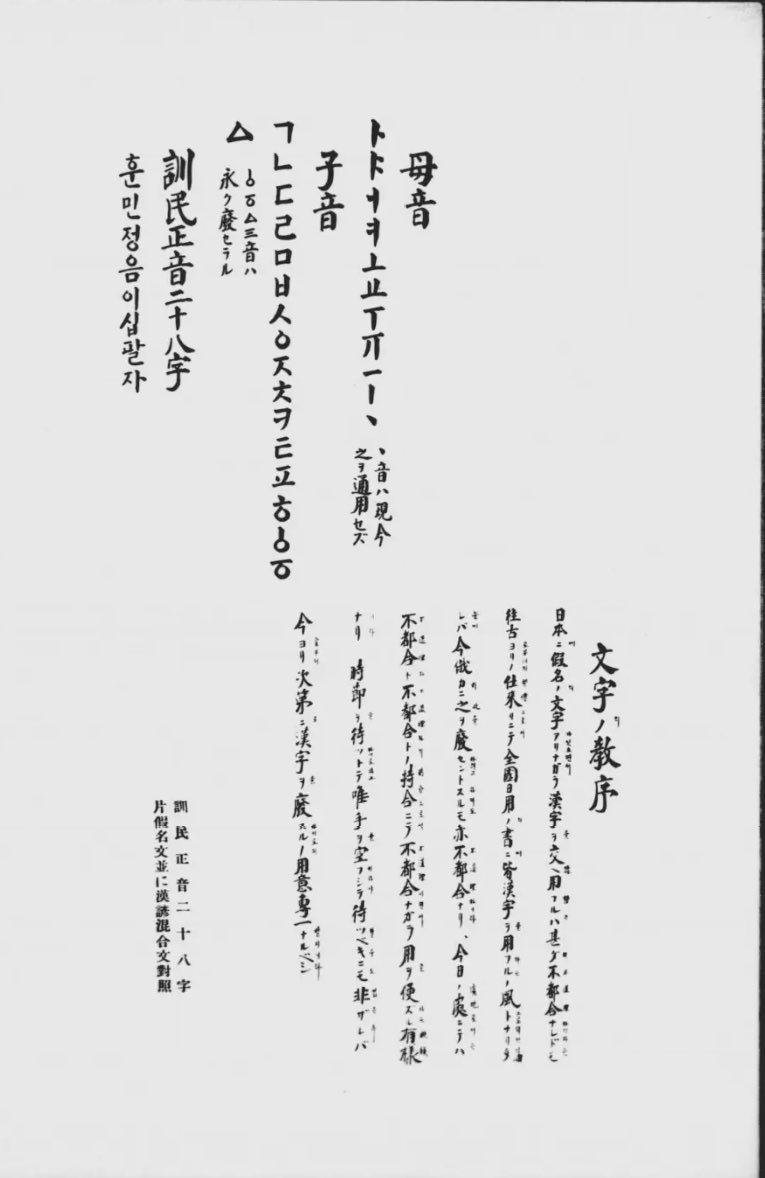 母音
ㅏㅑㅓㅕㅗㅛㅜㅠㅡㅣ丶
丶音ハ現今
之ヲ通用セズ
子音
ㄱㄴㄷㄹㅁㅂㅅㆁㅈㅊㅋㅌㅍㅎㆁㆆ
ㅿ
ㆁㆆㅿ三音ハ
永ク廢セラル
訓民正音二十八字
훈민정음이십팔자
文字ノ教序
日本ニ假名ノ文字アリナガラ漢字ヲ交ヘ用フルハ甚ダ不都合ナレドモ
往古ヨリノ仕来リニテ全國日用ノ書ニ皆漢字ヲ用フルノ風トナリタ
レバ今俄カニ之ヲ廢セントスルモ亦不都合ナリ、今日ノ處ニテハ
不都合ト不都合トノ持合ニテ不都合ナガラ用ヲ便ズル有樣
ナリ 時節ヲ待ツトテ唯手ヲ空フシテ待ツベキニモ非ザレバ
今ヨリ次第ニ漢字ヲ廢スルノ用意專一ナルベシ
訓民正音二十八字
片假名文並に漢諺混合文對照